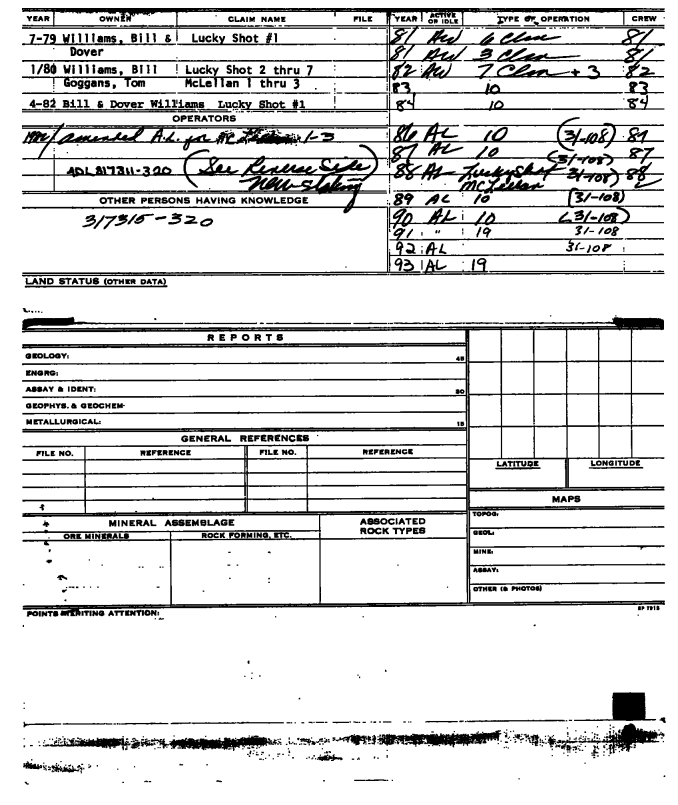 YEAR OWNER CLAIM NAME FILE
7-79 Williams, Bill & Lucky Shot #1
Dover
1/80 Williams, Bill Lucky Shot 2 thru 7
Goggans, Tom McLellan 1 thru 3
4-82 Bill & Dover Williams Lucky Shot #1
OPERATORS
amended A.L. for 1-3
ADL 317311-320 (See Reverse Side)
New staking
OTHER PERSONS HAVING KNOWLEDGE
317315-320
LAND STATUS (OTHER DATA)
YEAR ACTIVE OR IDLE TYPE OF OPERATION CREW
81 AW 6 Clm 81
81 AW 3 Clm 81
82 AW 7 Clm + 3 82
83 10 83
84 10 84
86 AL 10 (31-108)
87 AL 10 (31-108) 87
88 AL Lucky Shot 31-108) 88
McLellan
89 AL 10 (31-108)
90 AL 10 (31-108)
91 " 19 31-108
92 AL 31-108
93 AL 19
REPORTS
GEOLOGY: 45
ENGRG:
ASSAY & IDENT: 30
GEOPHYS. & GEOCHEM-
METALLURGICAL: 15
GENERAL REFERENCES
FILE NO. REFERENCE FILE NO. REFERENCE
LATITUDE LONGITUDE
MAPS
TOPOG:
GEOL:
MINE:
ASSAY:
OTHER (& PHOTOS)
MINERAL ASSEMBLAGE ASSOCIATED ROCK TYPES
ORE MINERALS ROCK FORMING, ETC.
POINTS MERITING ATTENTION: